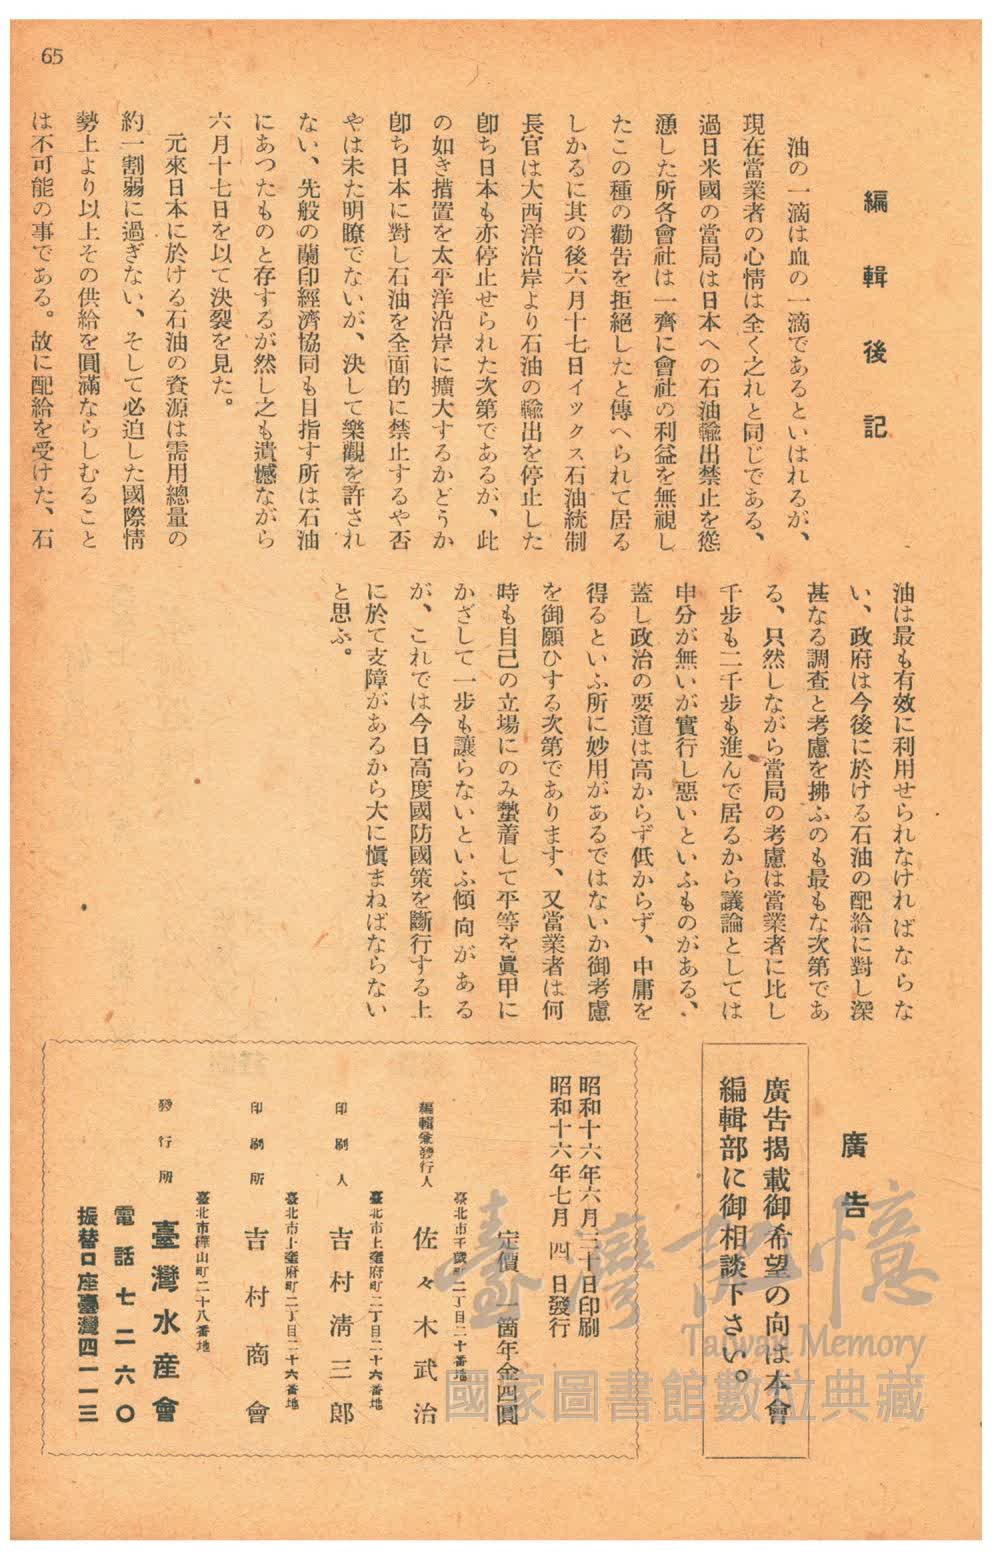 65
編輯後記
油の一滴は血の一滴であるといはれるが、
現在當業者の心情は全く之れと同じである、
過日米國の當局は日本への石油輸出禁止を慫
慂した所各會社は一齊に會社の利益を無視し
たこの種の勸告を拒絕したと傳へられて居る
しかるに其の後六月十七日イックス石油統制
長官は大西洋沿岸より石油の輸出を停止した
卽ち日本も亦停止せられた次第であるが、此
の如き措置を太平洋沿岸に擴大するかどうか
卽ち日本に對し石油を全面的に禁止するや否
やは未た明瞭でないが、決して樂觀を許され
ない、先般の蘭印經濟協同も目指す所は石油
にあつたものと存するが然し之も遺憾ながら
六月十七日を以て決裂を見た。
元來日本に於ける石油の資源は需用總量の
約一割弱に過ぎない、そして必迫した國際情
勢上より以上その供給を圓滿ならしむること
は不可能の事である。故に配給を受けた、石
油は最も有效に利用せられなければならな
い、政府は今後に於ける石油の配給に對し深
甚なる調査と考慮を拂ふのも最もな次第であ
る、只然しながら當局の考慮は當業者に比し
千步も二千步も進んで居るから議論としては
申分が無いが實行し惡いといふものがある、
蓋し政治の要道は高からず低からず、中庸を
得るといふ所に妙用があるではないか御考慮
を御願ひする次第であります、又當業者は何
時も自己の立場にのみ蟄着して平等を眞甲に
かざして一步も讓らないといふ傾向がある
が、これでは今日高度國防國策を斷行する上
に於て支障があるから大に愼まねばならない
と思ふ。
廣告
廣告揭載御希望の向は本會
編輯部に御相談下さい。
昭和十六年六月三十日印刷
昭和十六年七月四日發行
定價 一箇年金四圓
臺北市千歲町二丁目二十番地
編輯兼發行人 佐々木武治
臺北市上奎府町二丁目二十六番地
印刷人 吉村淸三郎
臺北市上奎府町二丁目二十六番地
印刷所 吉村商會
臺北市樺山町二十八番地
發行所 臺灣水產會
電話七二六〇
振替口座臺灣四一一三
臺灣記憶
Taiwan Memory
國家圖書館數位典藏